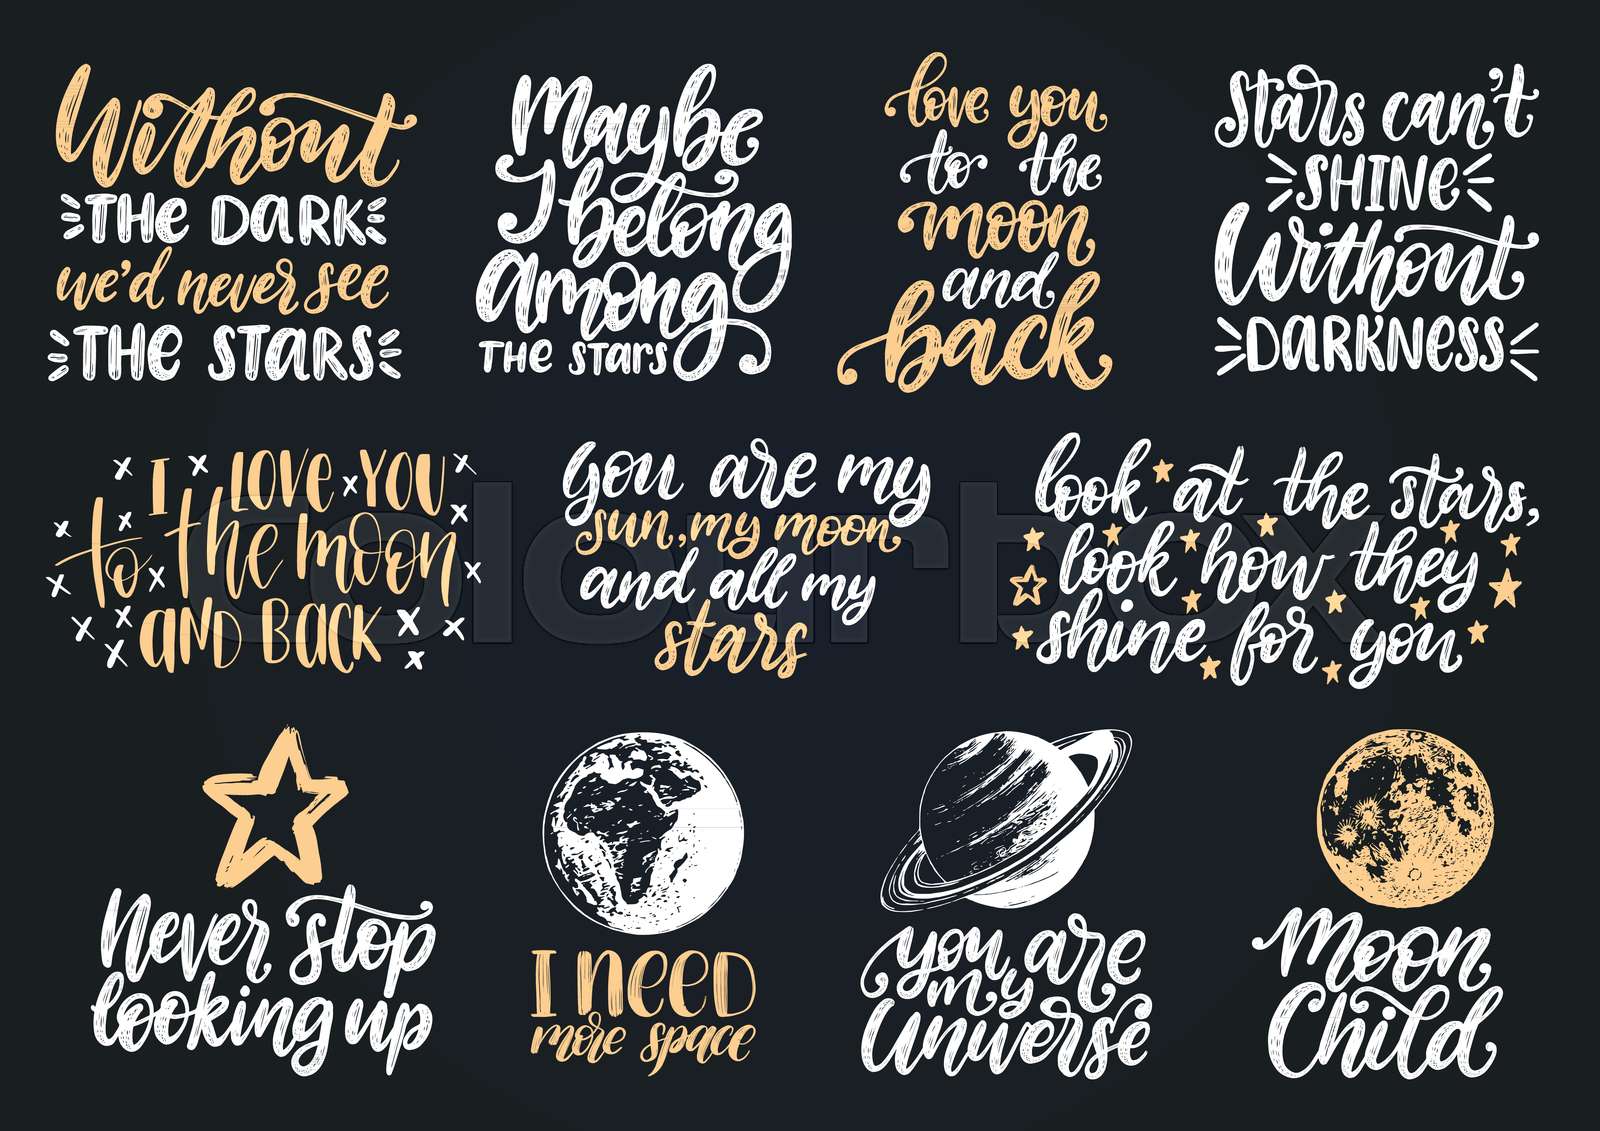 Without
THE DARK
we'd never see
THE STARS
Maybe
I belong
among
THE STARS
love you
to the
moon
and
back
Stars can't
SHINE
Without
DARKNESS
I LOVE YOU
to the moon
AND BACK
you are my
sun, my moon
and all my
stars
look at the stars,
look how they
shine for you
Never stop
looking up
I NEED
more space
you are
my
Universe
Moon
Child
colourbox